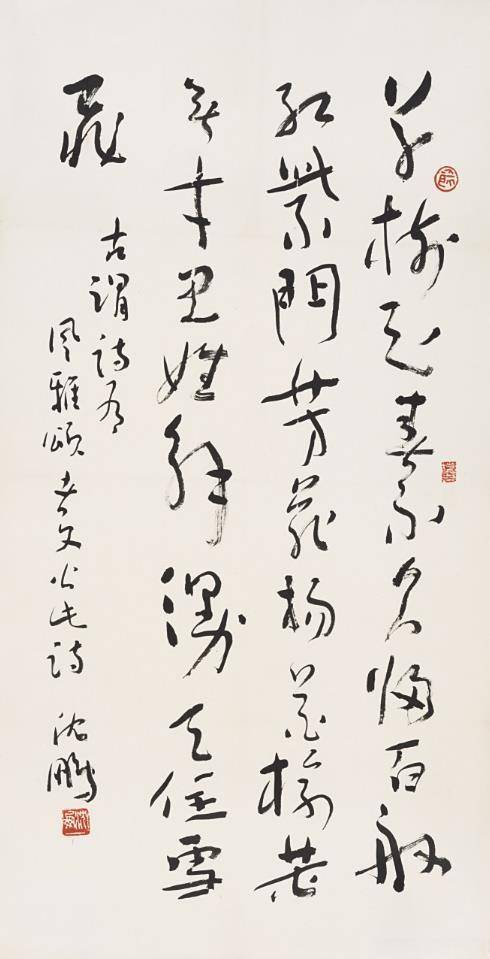 草樹知春不久歸百般
紅紫鬥芳菲楊花榆莢
無才思惟解漫天作雪
飛
古謂詩有
風雅頌 此詩 沈鵬